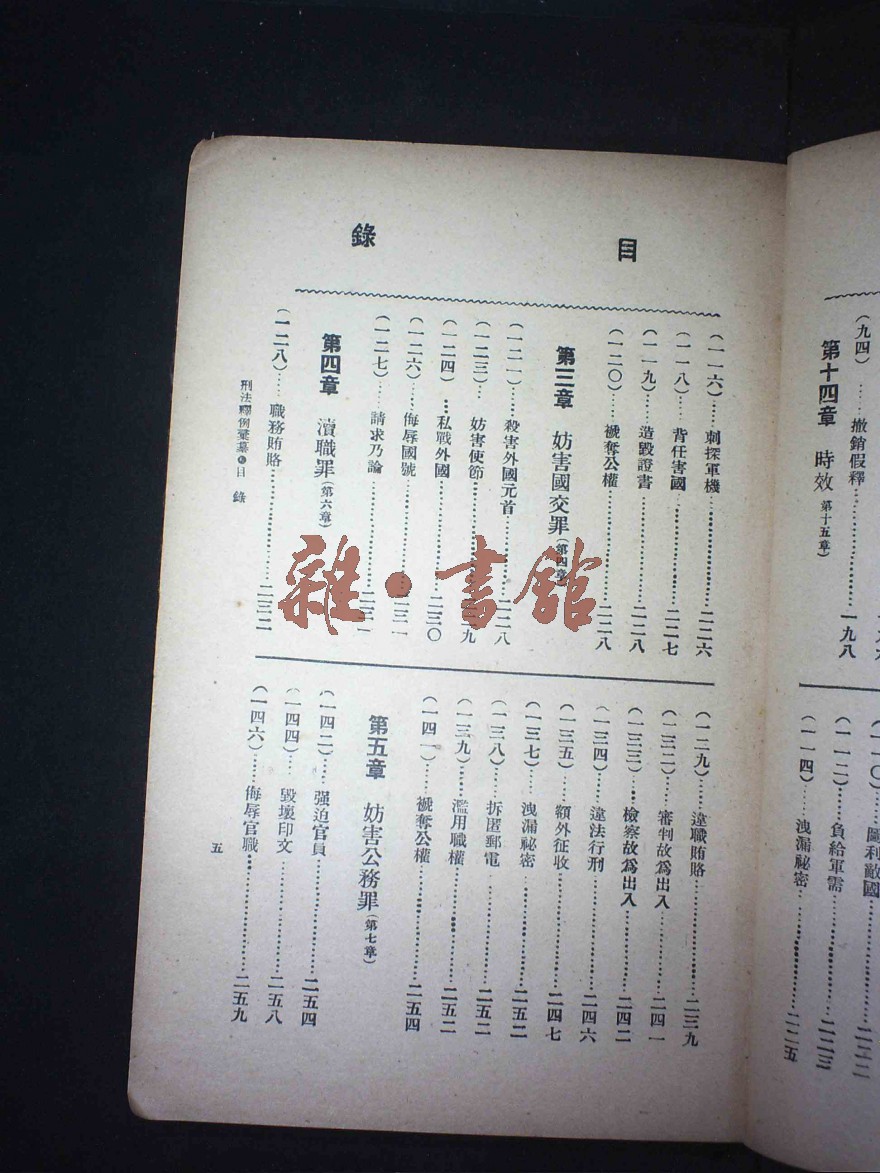 (九四)……撤銷假釋
第十四章 時效(第十五章)……一九八
(一一二)……負給軍需……二二三
(一一四)……洩漏祕密……二二五
目錄
(一一六)……刺探軍機……二二六
(一一八)……背任害國……二二七
(一一九)……造毀證書……二二八
(一二〇)……褫奪公權……二二八
第三章 妨害國交罪(第四章)
(一二一)……殺害外國元首……二二八
(一二三)……妨害使節……二二九
(一二四)……私戰外國……二三〇
(一二六)……侮辱國號……二三一
(一二七)……請求乃論……二三一
第四章 瀆職罪(第六章)
(一二八)……職務賄賂……二三二
(一二九)……違職賄賂……二三九
(一三二)……審判故爲出入……二四一
(一三三)……檢察故爲出入……二四二
(一三四)……違法行刑……二四六
(一三五)……額外征收……二四七
(一三七)……洩漏祕密……二五二
(一三八)……拆匿郵電……二五二
(一三九)……濫用職權……二五二
(一四一)……褫奪公權……二五四
第五章 妨害公務罪(第七章)
(一四二)……强迫官員……二五四
(一四四)……毀壞印文……二五八
(一四六)……侮辱官職……二五九
刑法釋例彙纂 目錄
五
雜·書館